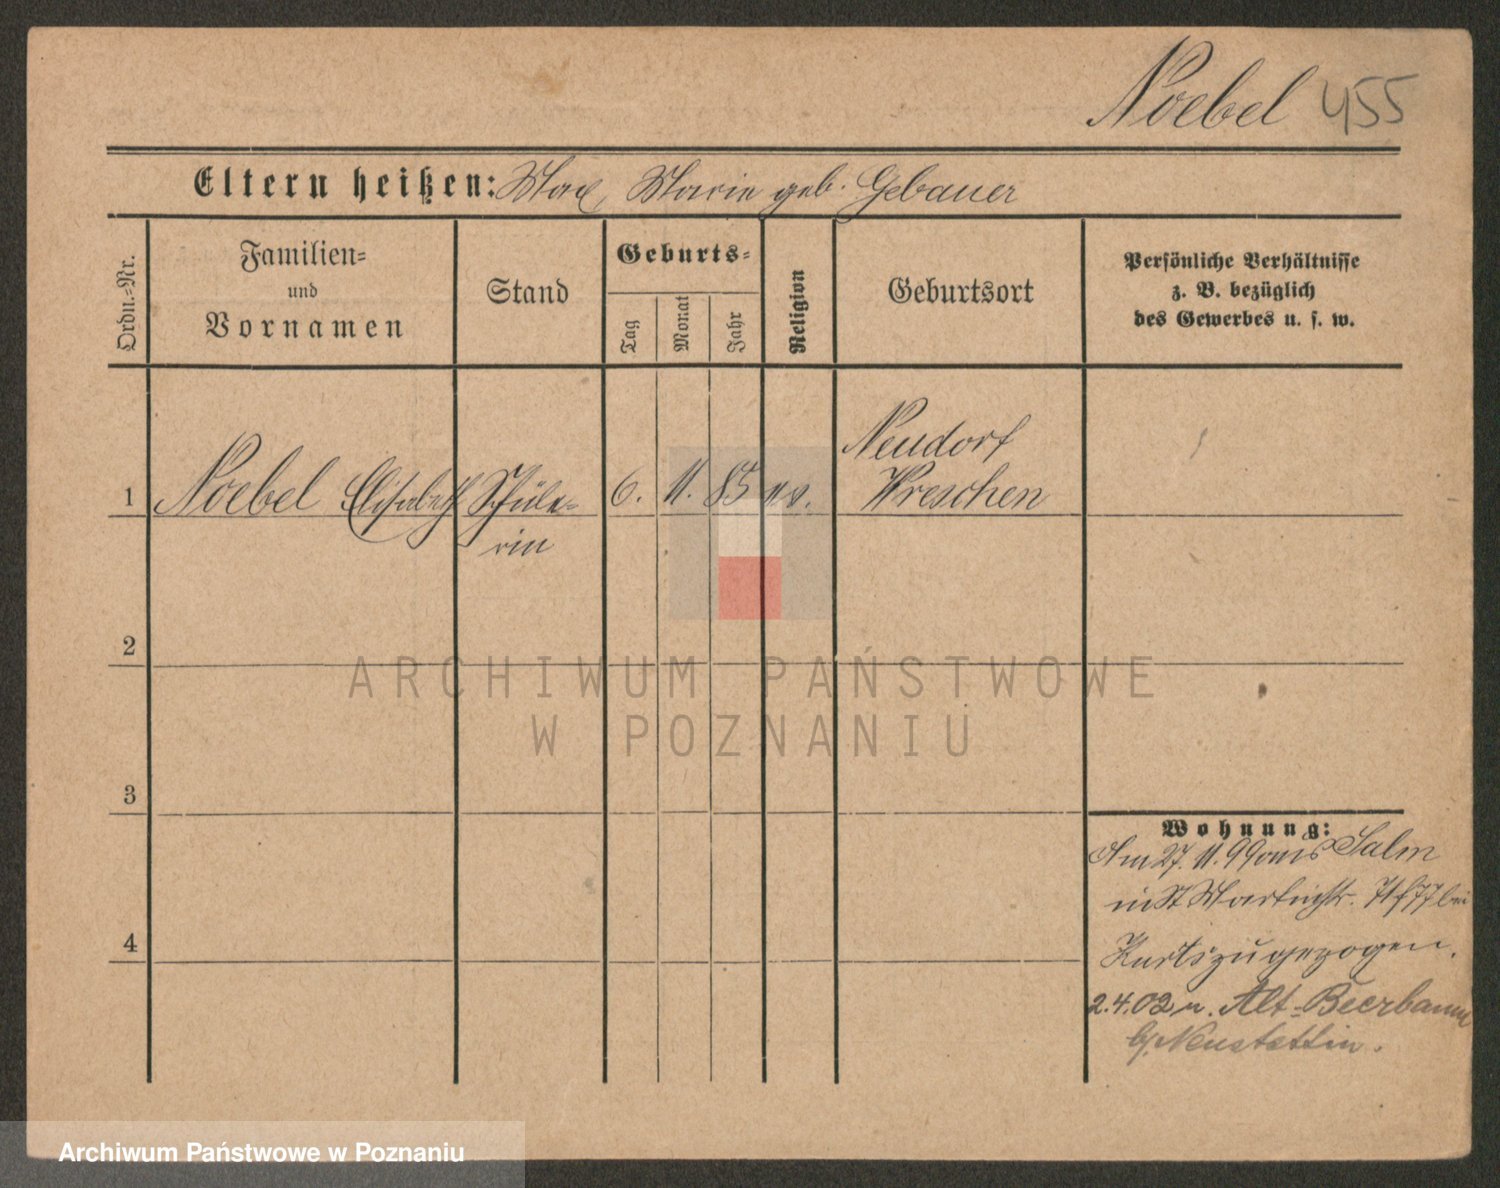 Noebel 455
Eltern heißen: Max, Marie geb. Gebauer
Ordn.-Nr.
Familien-
und
Vornamen
Stand
Geburts-
Tag
Monat
Jahr
Religion
Geburtsort
Persönliche Verhältnisse
z. B. bezüglich
des Gewerbes u. s. w.
1 Noebel Elisabeth Schüle-
rin
6. 11. 85 ev.
Neudorf
Wreschen
2
3
4
Wohnung:
Am 27. 11. 99 aus Salm
in St Martinstr. 71 f 77 bei
Kurtz zugezogen.
2.4.02 n. Alt-Beerbaum
b/Neustettin.
ARCHIWUM PAŃSTWOWE
W POZNANIU
Archiwum Państwowe w Poznaniu